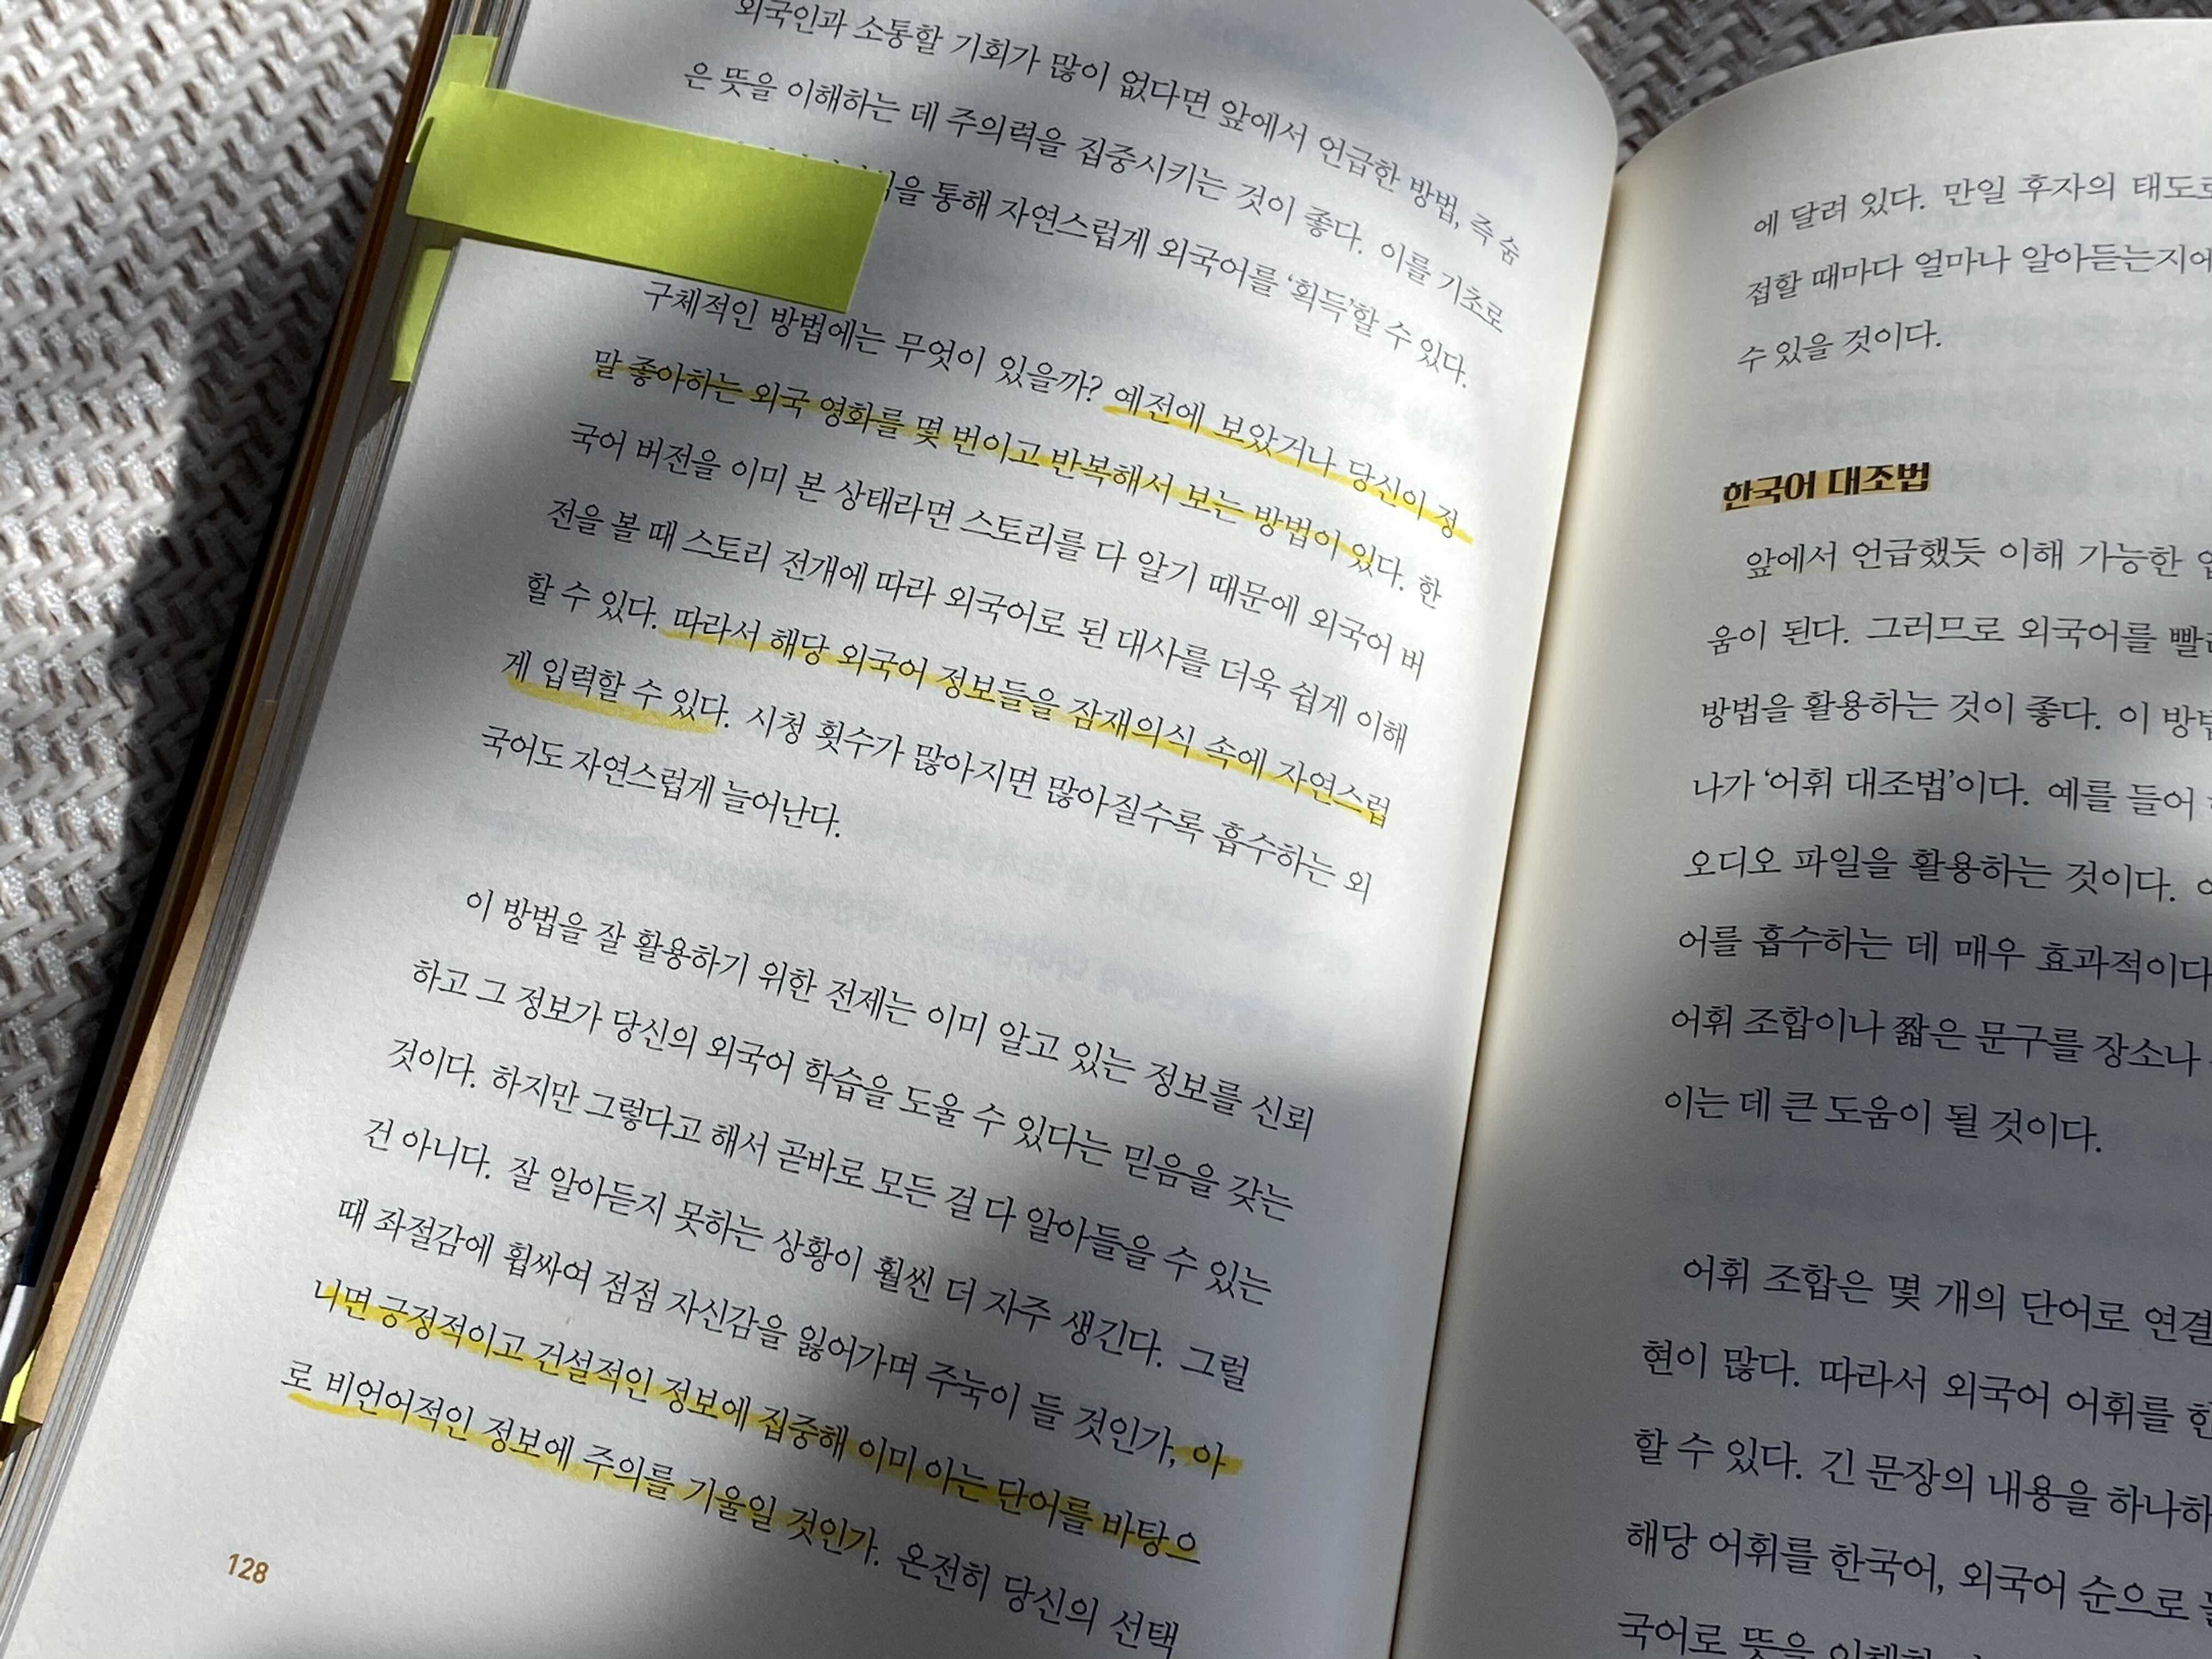 외국인과 소통할 기회가 많이 없다면 앞에서 언급한 방법, 즉 숨
은 뜻을 이해하는 데 주의력을 집중시키는 것이 좋다. 이를 기초로
통해 자연스럽게 외국어를 ‘획득’할 수 있다.
구체적인 방법에는 무엇이 있을까? 예전에 보았거나 당신이 정
말 좋아하는 외국 영화를 몇 번이고 반복해서 보는 방법이 있다. 한
국어 버전을 이미 본 상태라면 스토리를 다 알기 때문에 외국어 버
전을 볼 때 스토리 전개에 따라 외국어로 된 대사를 더욱 쉽게 이해
할 수 있다. 따라서 해당 외국어 정보들을 잠재의식 속에 자연스럽
게 입력할 수 있다. 시청 횟수가 많아지면 많아질수록 흡수하는 외
국어도 자연스럽게 늘어난다.
이 방법을 잘 활용하기 위한 전제는 이미 알고 있는 정보를 신뢰
하고 그 정보가 당신의 외국어 학습을 도울 수 있다는 믿음을 갖는
것이다. 하지만 그렇다고 해서 곧바로 모든 걸 다 알아들을 수 있는
건 아니다. 잘 알아듣지 못하는 상황이 훨씬 더 자주 생긴다. 그럴
때 좌절감에 휩싸여 점점 자신감을 잃어가며 주눅이 들 것인가, 아
니면 긍정적이고 건설적인 정보에 집중해 이미 아는 단어를 바탕으
로 비언어적인 정보에 주의를 기울일 것인가. 온전히 당신의 선택
128
에 달려 있다. 만일 후자의 태도로
접할 때마다 얼마나 알아듣는지에
수 있을 것이다.
한국어 대조법
앞에서 언급했듯 이해 가능한
움이 된다. 그러므로 외국어를
방법을 활용하는 것이 좋다. 이
나가 ‘어휘 대조법’이다. 예를 들어
오디오 파일을 활용하는 것이다.
어를 흡수하는 데 매우 효과적이다
어휘 조합이나 짧은 문구를 장소나
이는 데 큰 도움이 될 것이다.
어휘 조합은 몇 개의 단어로 연결
현이 많다. 따라서 외국어 어휘를
할 수 있다. 긴 문장의 내용을 하나하
해당 어휘를 한국어, 외국어 순으로
국어로 뜻을